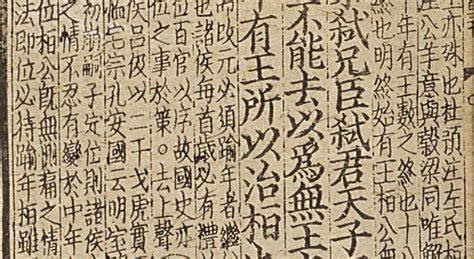 亦殊也杜預注左氏桓
左公羊意與穀梁同唯解
年有王數之終也十八
也明然始有王桓公無
弑兄臣弑君天子
不能去以爲無王
有王所以治桓
以元必須踰年者繼
也諸侯每首歲必有禮
位百官以序故國史亦
位之事於策。去上聲
侯呂伋以二干戈虎賁
恤宅宗孔安國云明室
初崩嗣子定位則諸侯
之情不忍有變於中年
位桓公既無惻痛之情
法即位必待踰年桓雖